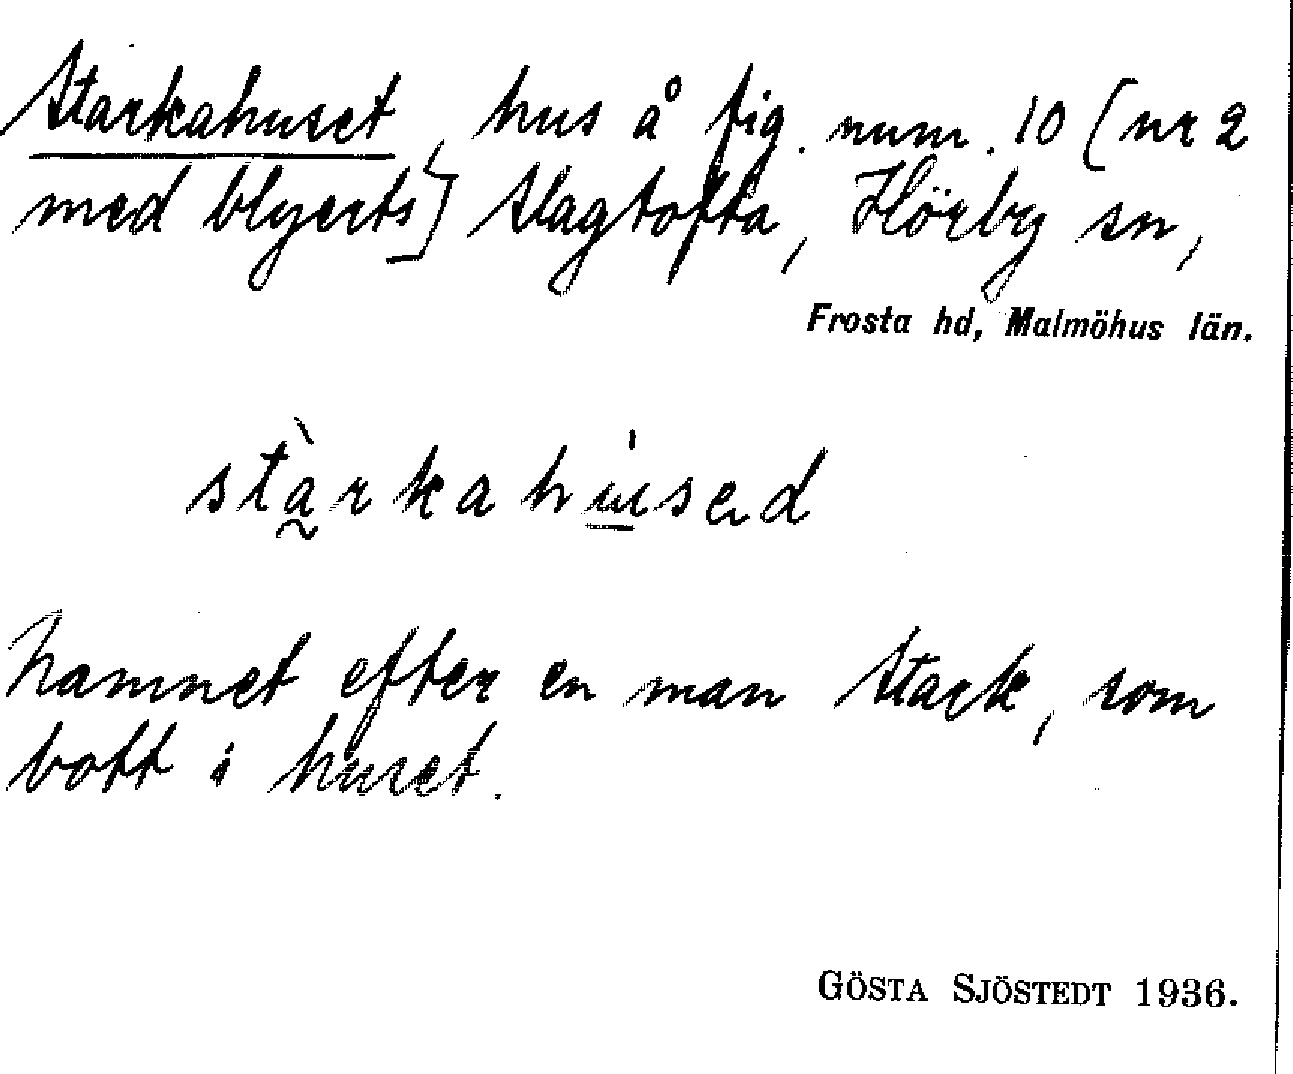 Starkahuset, hus å fig. num. 10 [nr 2
med blyerts] Slagtofta, Hörby sn,
Frosta hd, Malmöhus län.
stàrkahúsed
Namnet efter en man Stark, som
bott i huset.
GÖSTA SJÖSTEDT 1936.